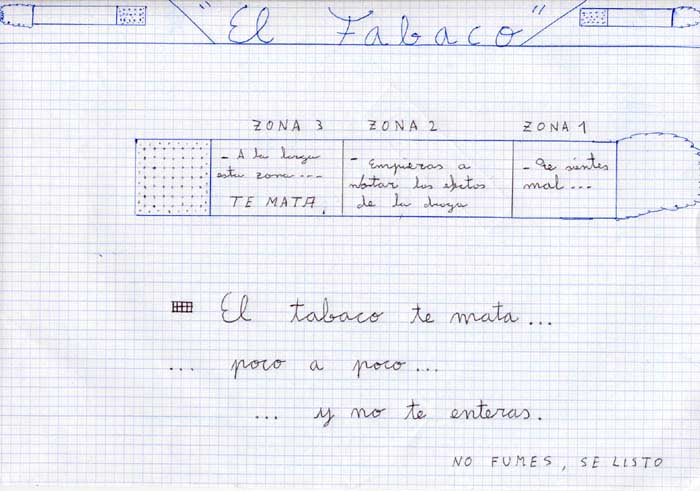 "El Tabaco"
ZONA 3 ZONA 2 ZONA 1
- A la larga
esta zona...
TE MATA.
- Empiezas a
notar los efectos
de la droga
- Te sientes
mal...
El tabaco te mata...
... poco a poco...
... y no te enteras.
NO FUMES, SE LISTO